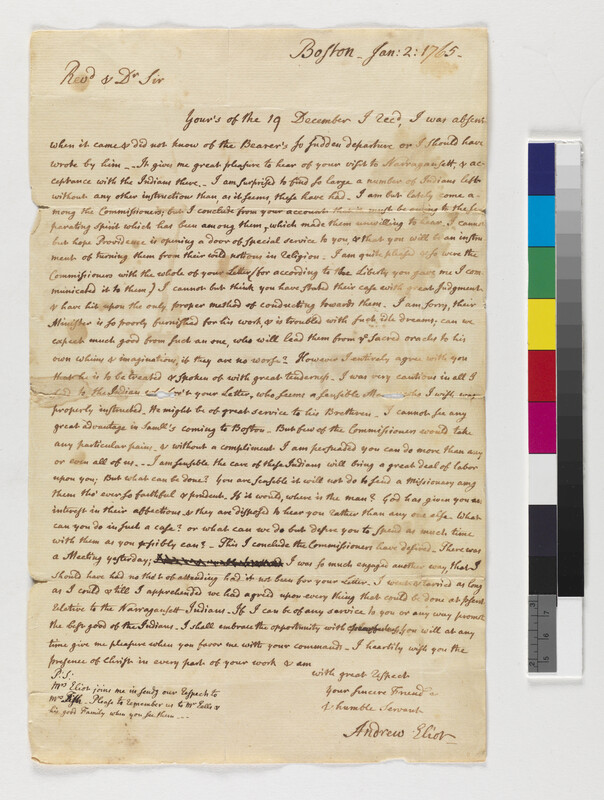 Boston - Jan: 2: 1765 -
Revd & Dr Sir
Your's of the 19 December I recd, I was absent
when it came & did not know of the Bearer's so sudden departure or I should have
wrote by him - It gives me great pleasure to hear of your visit to Narragansett, & ac-
ceptance with the Indians there. - I am surprised to find so large a number of Indians left
without any other instruction than as it seems, these have had. I am but lately come a-
mong the Commissioners; but I conclude from your account must be owing to the sepa-
parating spirit which has been among them, which made them unwilling to hear. I cannot
but hope Providence is opening a door of special service to you, & that you will be an instru
ment of turning them from their wild notions in Religion. - I am quite pleased were the
Commissioners with the whole of your Letter (for according to the Liberty you gave me I com-
municated it to them) I cannot but think you have stated their case with great Judgment
& have hit upon the only proper method of conducting towards them. - I am sorry, their
Minister is so poorly furnished for his work, & is troubled with such idle dreams; can we
expect much good from such an one, who will lead them from ye Sacred oracles to his
own whims & imagination, if they are no worse? However I entirely agree with you
that he is to be treated & spoken of with great tenderness. I was very cautious in all I
said to the Indian your Letter, who seems a sensible who I wish was
properly instructed. He might be of great service to his Brethren. - I cannot see any
great advantage in Samll's coming to Boston. But few of the Commissioners would take
any particular pains. & without a compliment I am persuaded you can do more than any
or even all of us. - I am sensible the care of these Indians will bring a great deal of labor
upon you; But what can be done? You are sensible it will not do to send a Missionary amg
them tho' ever so faithful & prudent. If it would, where is the man? God has given you an
interest in their affections & they are disposed to hear you rather than any one else. What
can you do in such a case? or what can we do but desire you to spend as much time
with them as you possibly can? - This I conclude the Commissioners have desired. There was
a Meeting yesterday; I was so much engaged another way, that I
should have had no tho't of attending had it not been for your Letter. I went & tarried as long
as I could & till I apprehended we had agreed upon every thing that could be done at present
relative to the Narragansett Indians. If I can be of any service to you or any way promote
the best good of the Indians. I shall embrace the opportunity with you will at any
time give me pleasure when you favor me with your commands. - I heartily wish you the
presence of Christ in every part of your work & am
with great respect
Your sincere Friend &
& humble Servant
Andrew Eliot
P.S:
Mrs Eliot joins me in sendg our respects to
Mrs Fish. Please to remember us to Mr Eells &
his good Family when you see them ---